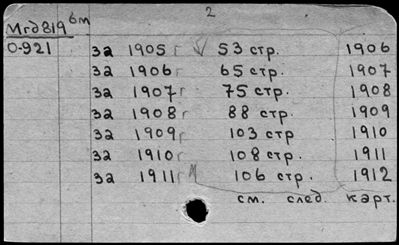 2
Мгд819 6м
О-921
за 1905 г 53 стр. 1906
за 1906 г 65 стр. 1907
за 1907 г 75 стр. 1908
за 1908 г 88 стр. 1909
за 1909 г 103 стр 1910
за 1910 г 108 стр. 1911
за 1911 г 106 стр. 1912
см. след. карт.